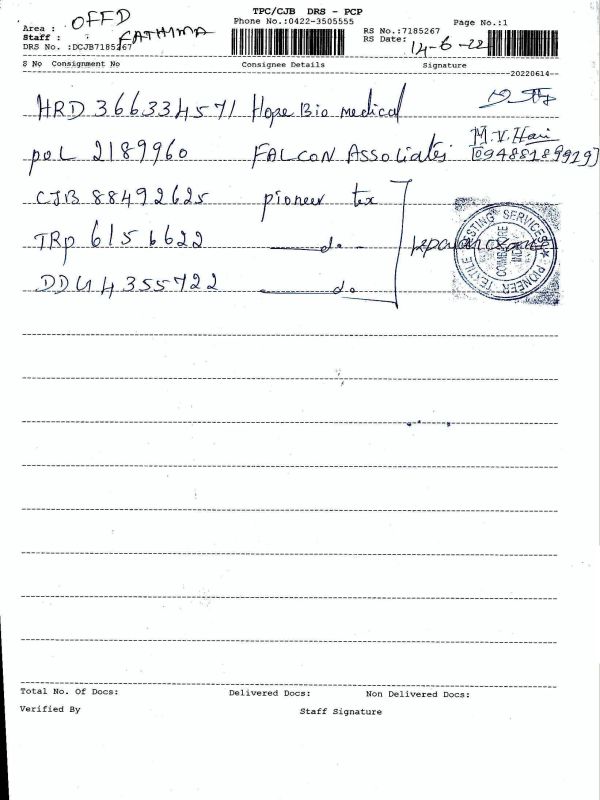 TPC/CJB DRS - PCP
Phone No.:0422-3505555
Page No.:1
Area : OFFD
Staff : FATHIMA
DRS No. :DCJB7185267
RS No.:7185267
RS Date: 14-6-22
S No Consignment No Consignee Details Signature
20220614
HRD 366334571 Hope Bio medical
POL 2189960 FALCON Associates M.V. Hari
[09488189919]
CJB 88492625 pioneer tex
TRP 6156622 do
DDU 4355722 do
PIONEER TEXTILE TESTING SERVICES
COIMBATORE
Total No. Of Docs: Delivered Docs: Non Delivered Docs:
Verified By Staff Signature